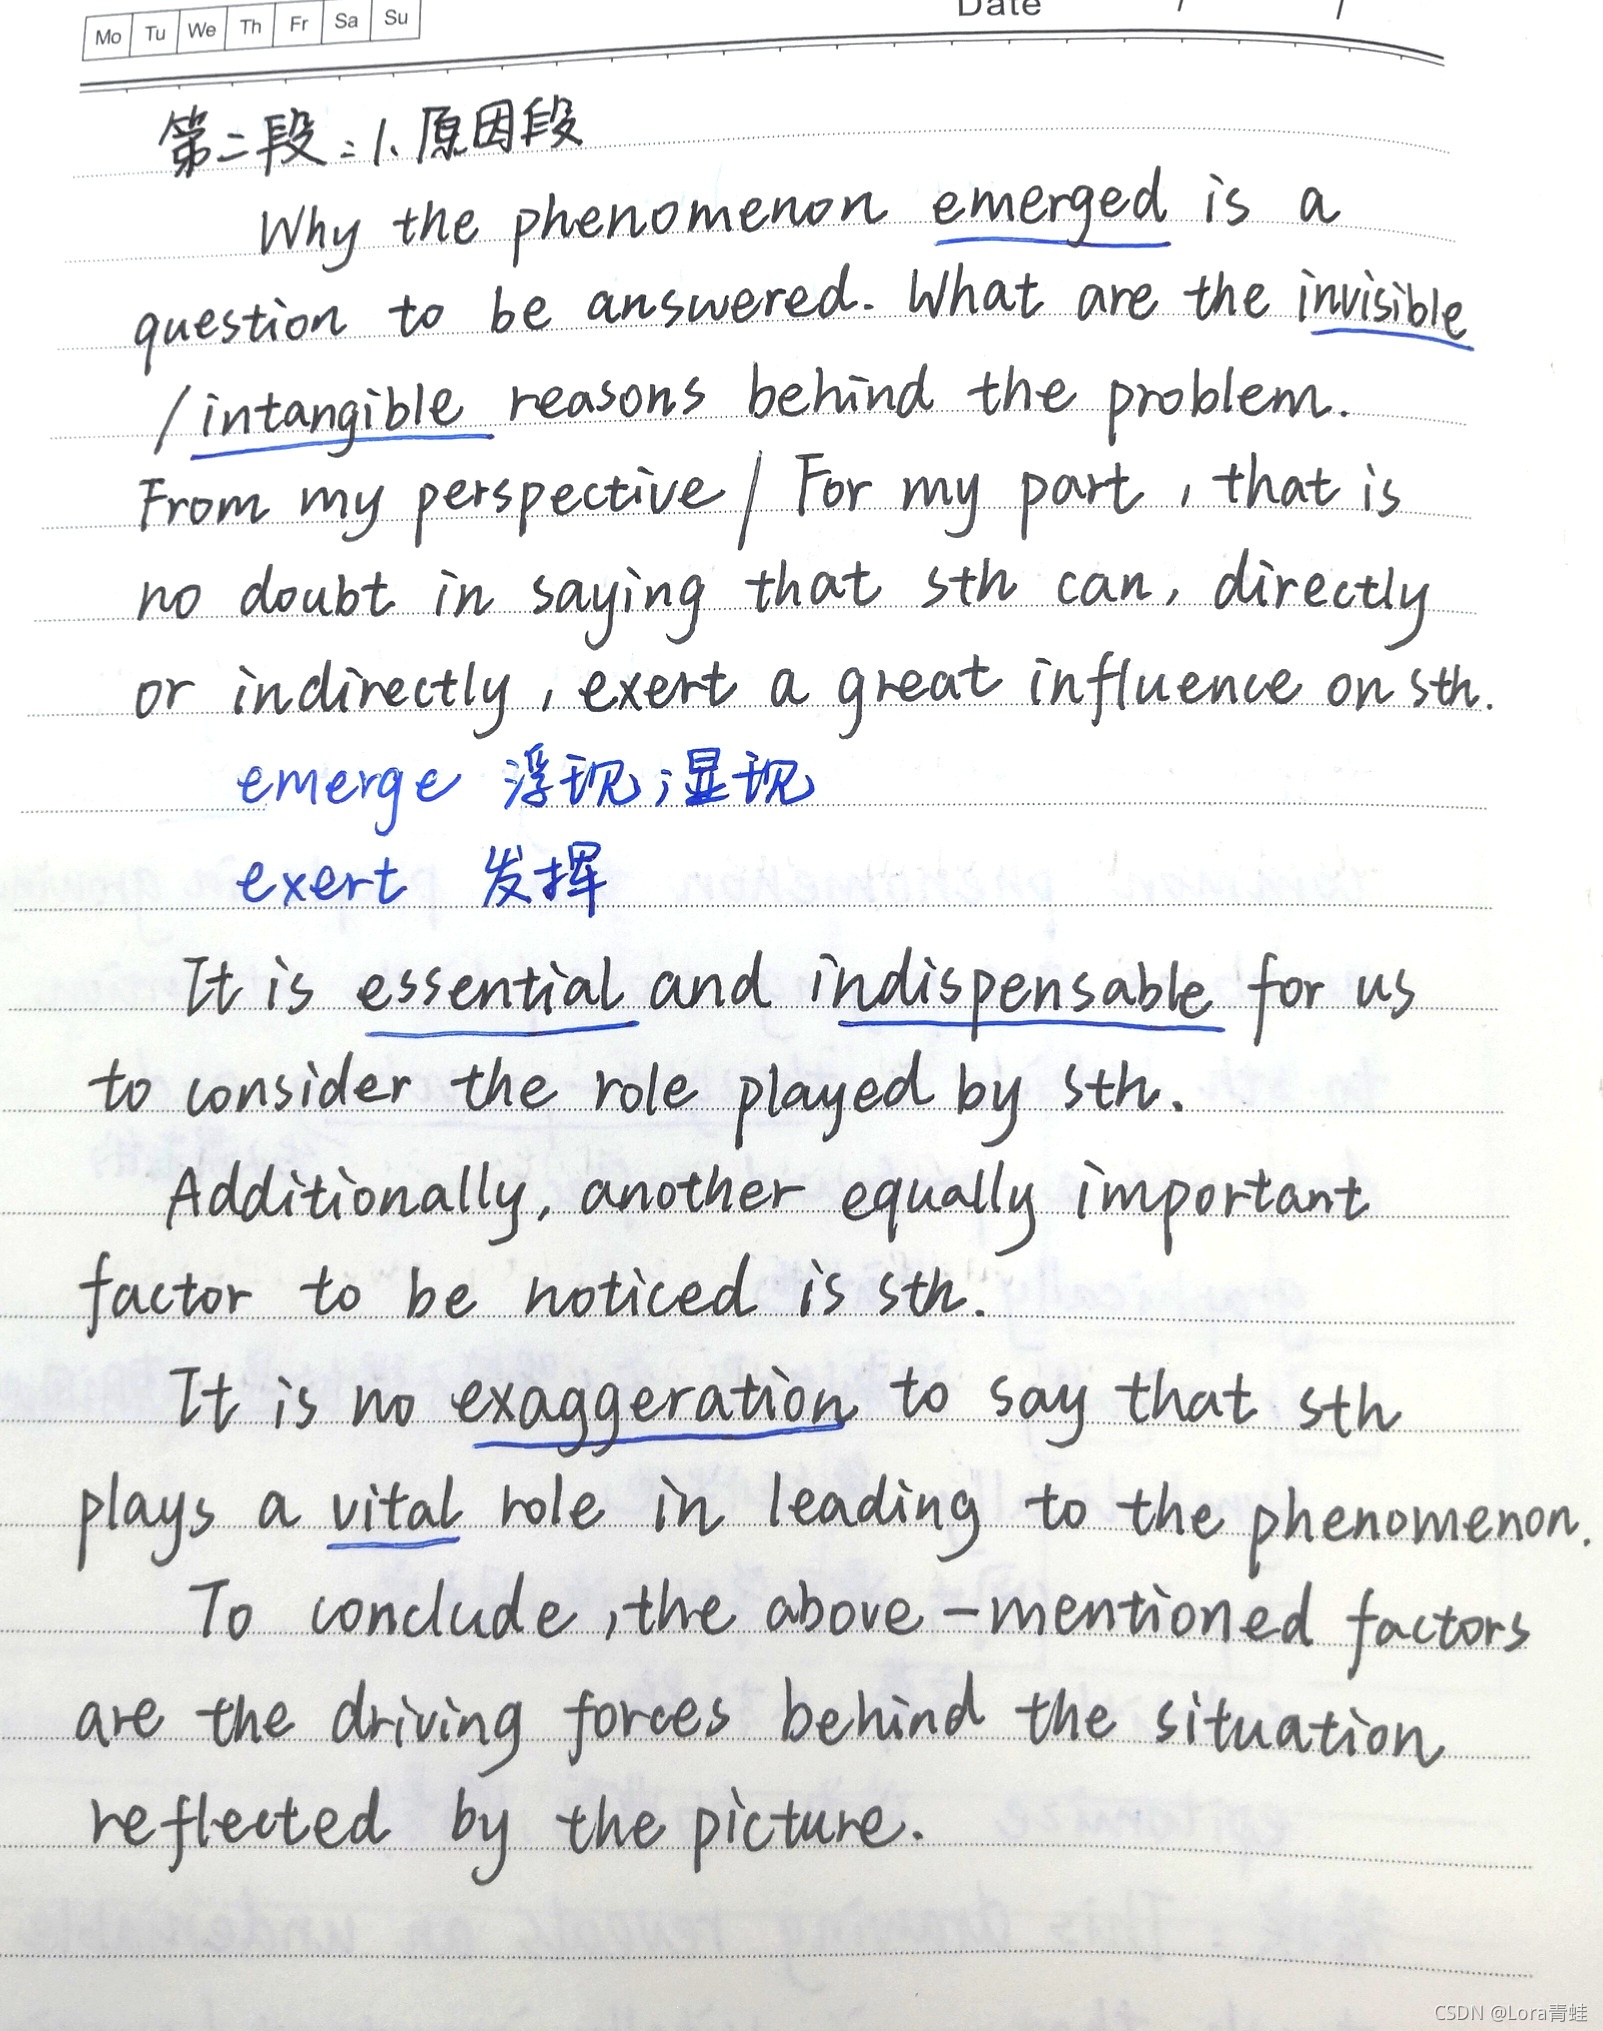 Mo Tu We Th Fr Sa Su
Date / /
第二段：1、原因段
Why the phenomenon emerged is a
question to be answered. What are the invisible
/intangible reasons behind the problem.
From my perspective / For my part, that is
no doubt in saying that sth can, directly
or indirectly, exert a great influence on sth.
emerge 浮现；显现
exert 发挥
It is essential and indispensable for us
to consider the role played by sth.
Additionally, another equally important
factor to be noticed is sth.
It is no exaggeration to say that sth
plays a vital role in leading to the phenomenon.
To conclude, the above-mentioned factors
are the driving forces behind the situation
reflected by the picture.
CSDN @Lora青蛙